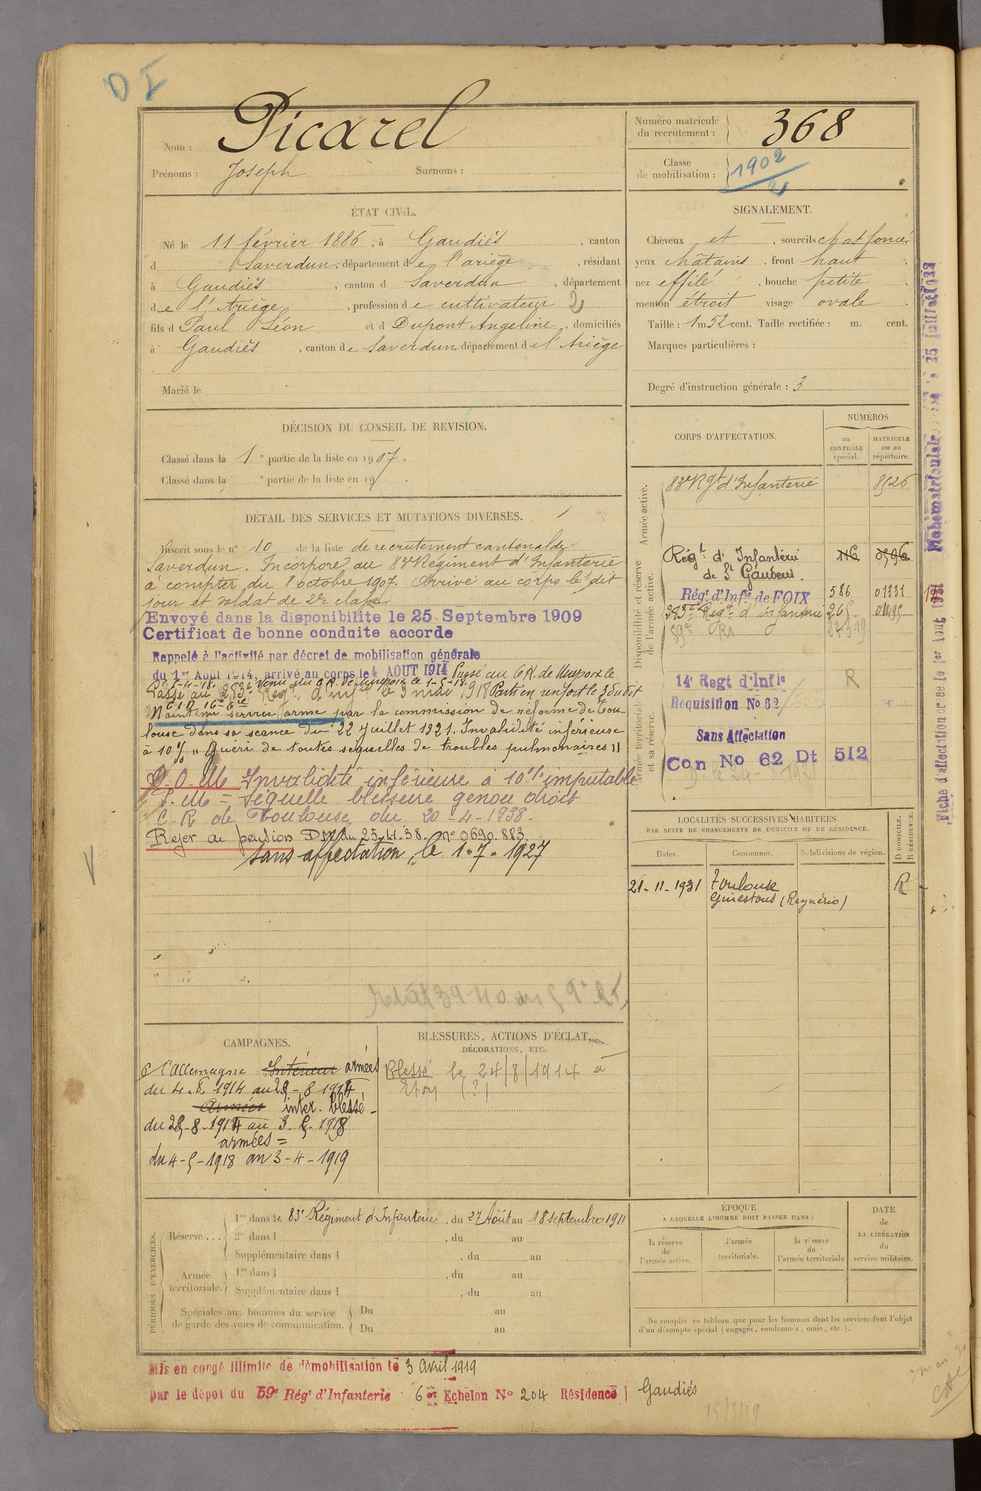 Nom : Picarel
Prénoms : Joseph Surnoms :
Numéro matricule du recrutement : 368
Classe de mobilisation : 1902
ÉTAT CIVIL.
Né le 11 février 1886, à Gaudiès, canton
d Saverdun, département de l'ariège, résidant
à Gaudiès, canton d Saverdun, département
de l'Ariège, profession de cultivateur
fils d Paul Léon et d Dupont Angeline, domiciliés
à Gaudiès, canton de Saverdun département de l'Ariège
Marié le
SIGNALEMENT.
Cheveux et, sourcils chat foncé
yeux chatains, front haut
nez effilé, bouche petite
menton étroit visage ovale
Taille : 1 m 52 cent. Taille rectifiée : m. cent.
Marques particulières :
Degré d'instruction générale : 3
DÉCISION DU CONSEIL DE REVISION.
Classé dans la 1e partie de la liste en 1907.
Classé dans la e partie de la liste en 19
DÉTAIL DES SERVICES ET MUTATIONS DIVERSES.
Inscrit sous le n° 10 de la liste de recrutement cantonal de
Saverdun. Incorporé au 83e Régiment d'Infanterie
à compter du 8 octobre 1907. Arrivé au corps le dit
jour et soldat de 2e classe
Envoyé dans la disponibilité le 25 Septembre 1909
Certificat de bonne conduite accordé
Rappelé à l'activité par décret de mobilisation générale
du 1er Août 1914, arrivé au corps le 4 AOUT 1914
Maintenu service armé par la commission de réforme de Tou
louse dans sa séance du 22 juillet 1921. Invalidité inférieure
à 10% "Guéri de toutes séquelles de troubles pulmonaires"
Invalidité inférieure à 10% imputable
séquelle blessure genou droit
C. R. de Toulouse du 20-4-1938.
Rejet de pension DM du 25.11.38. N° 0690.883
sans affectation, le 1-7-1927
CORPS D'AFFECTATION.
NUMÉROS
au CONTRÔLE spécial.
MATRICULE ou au répertoire.
Armée active.
83e Rgt d'Infanterie 8526
Disponibilité et réserve de l'armée active.
Régt d'Infanterie
de St Gaudens.
Régt d'Infie de FOIX 586 01331
283e Regt d'infanterie
59e RI
Armée territoriale et sa réserve.
14e Regt d'Infie R
Réquisition No 62
Sans Affectation
Can No 62 Dt 512
LOCALITÉS SUCCESSIVES HABITÉES
PAR SUITE DE CHANGEMENTS DE DOMICILE OU DE RÉSIDENCE.
D DOMICILE. R RÉSIDENCE.
Dates. Communes. Subdivisions de région.
21-11-1931 Toulouse R
Ginestous
CAMPAGNES.
C l'Allemagne Intérieur armées
du 4.8.1914 au 28-8-1914
Armées inter. blessé
du 28-8-1914 au 3.5.1918
armées =
du 4-5-1918 au 3-4-1919
BLESSURES, ACTIONS D'ÉCLAT,
DÉCORATIONS, ETC.
Blessé le 24/8/1914 à
(?)
PÉRIODES D'EXERCICES.
Réserve
1re dans le 83e Régiment d'Infanterie, du 27 Août au 18 septembre 1911
2e dans l , du au
Supplémentaire dans l , du au
Armée territoriale.
1re dans l , du au
Supplémentaire dans l , du au
Spéciales aux hommes du service de garde des voies de communication.
Du au
Du au
ÉPOQUE
A LAQUELLE L'HOMME DOIT PASSER DANS :
la réserve de l'armée active.
l'armée territoriale.
la réserve de l'armée territoriale
DATE de LA LIBÉRATION du service militaire.
Ne remplir ce tableau que pour les hommes dont les services font l'objet
d'un décompte spécial (engagés, condamnés, omis, etc.).
Mis en congé illimité de démobilisation le 3 Avril 1919
par le dépôt du 59e Régt d'Infanterie 6e Echelon No 204 Résidence Gaudiès